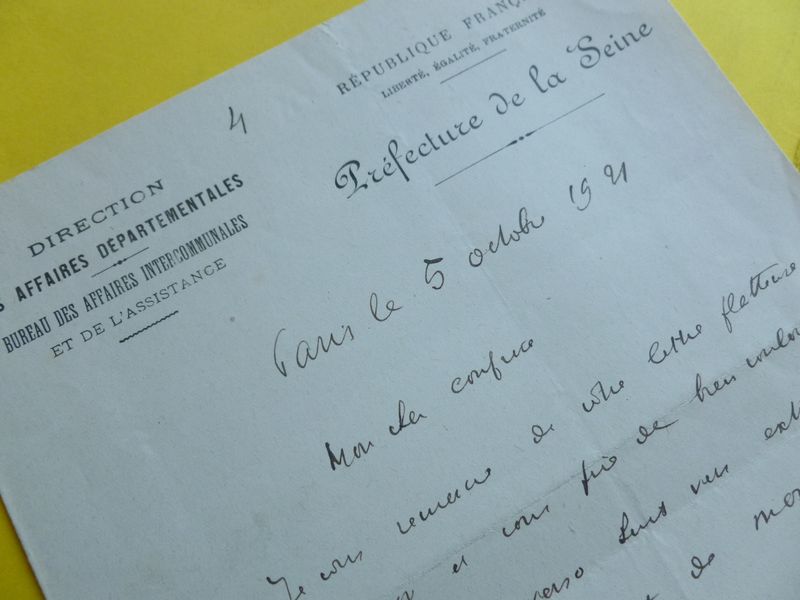 4
RÉPUBLIQUE FRANÇ
LIBERTÉ, ÉGALITÉ, FRATERNITÉ
Préfecture de la Seine
DIRECTION
S AFFAIRES DÉPARTEMENTALES
BUREAU DES AFFAIRES INTERCOMMUNALES
ET DE L'ASSISTANCE
Paris le 5 octobre 1921
Mon cher confrère
Je vous remercie de votre lettre flatteuse
et vous prie de bien vouloi
verso deux vers ext
de mon